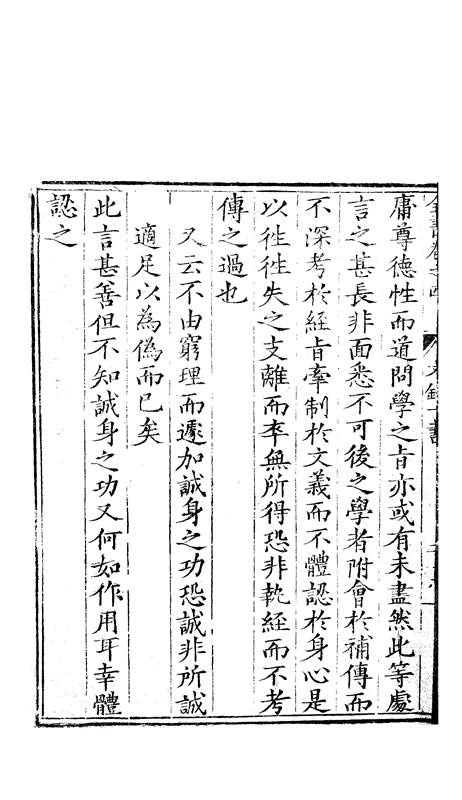 庸尊德性而道問學之旨亦或有未盡然此等處
言之甚長非面悉不可後之學者附會於補傳而
不深考於經旨牽制於文義而不體認於身心是
以徃徃失之支離而卒無所得恐非執經而不考
傳之過也
又云不由窮理而遽加誠身之功恐誠非所誠
適足以為偽而已矣
此言甚善但不知誠身之功又何如作用耳幸體
認之